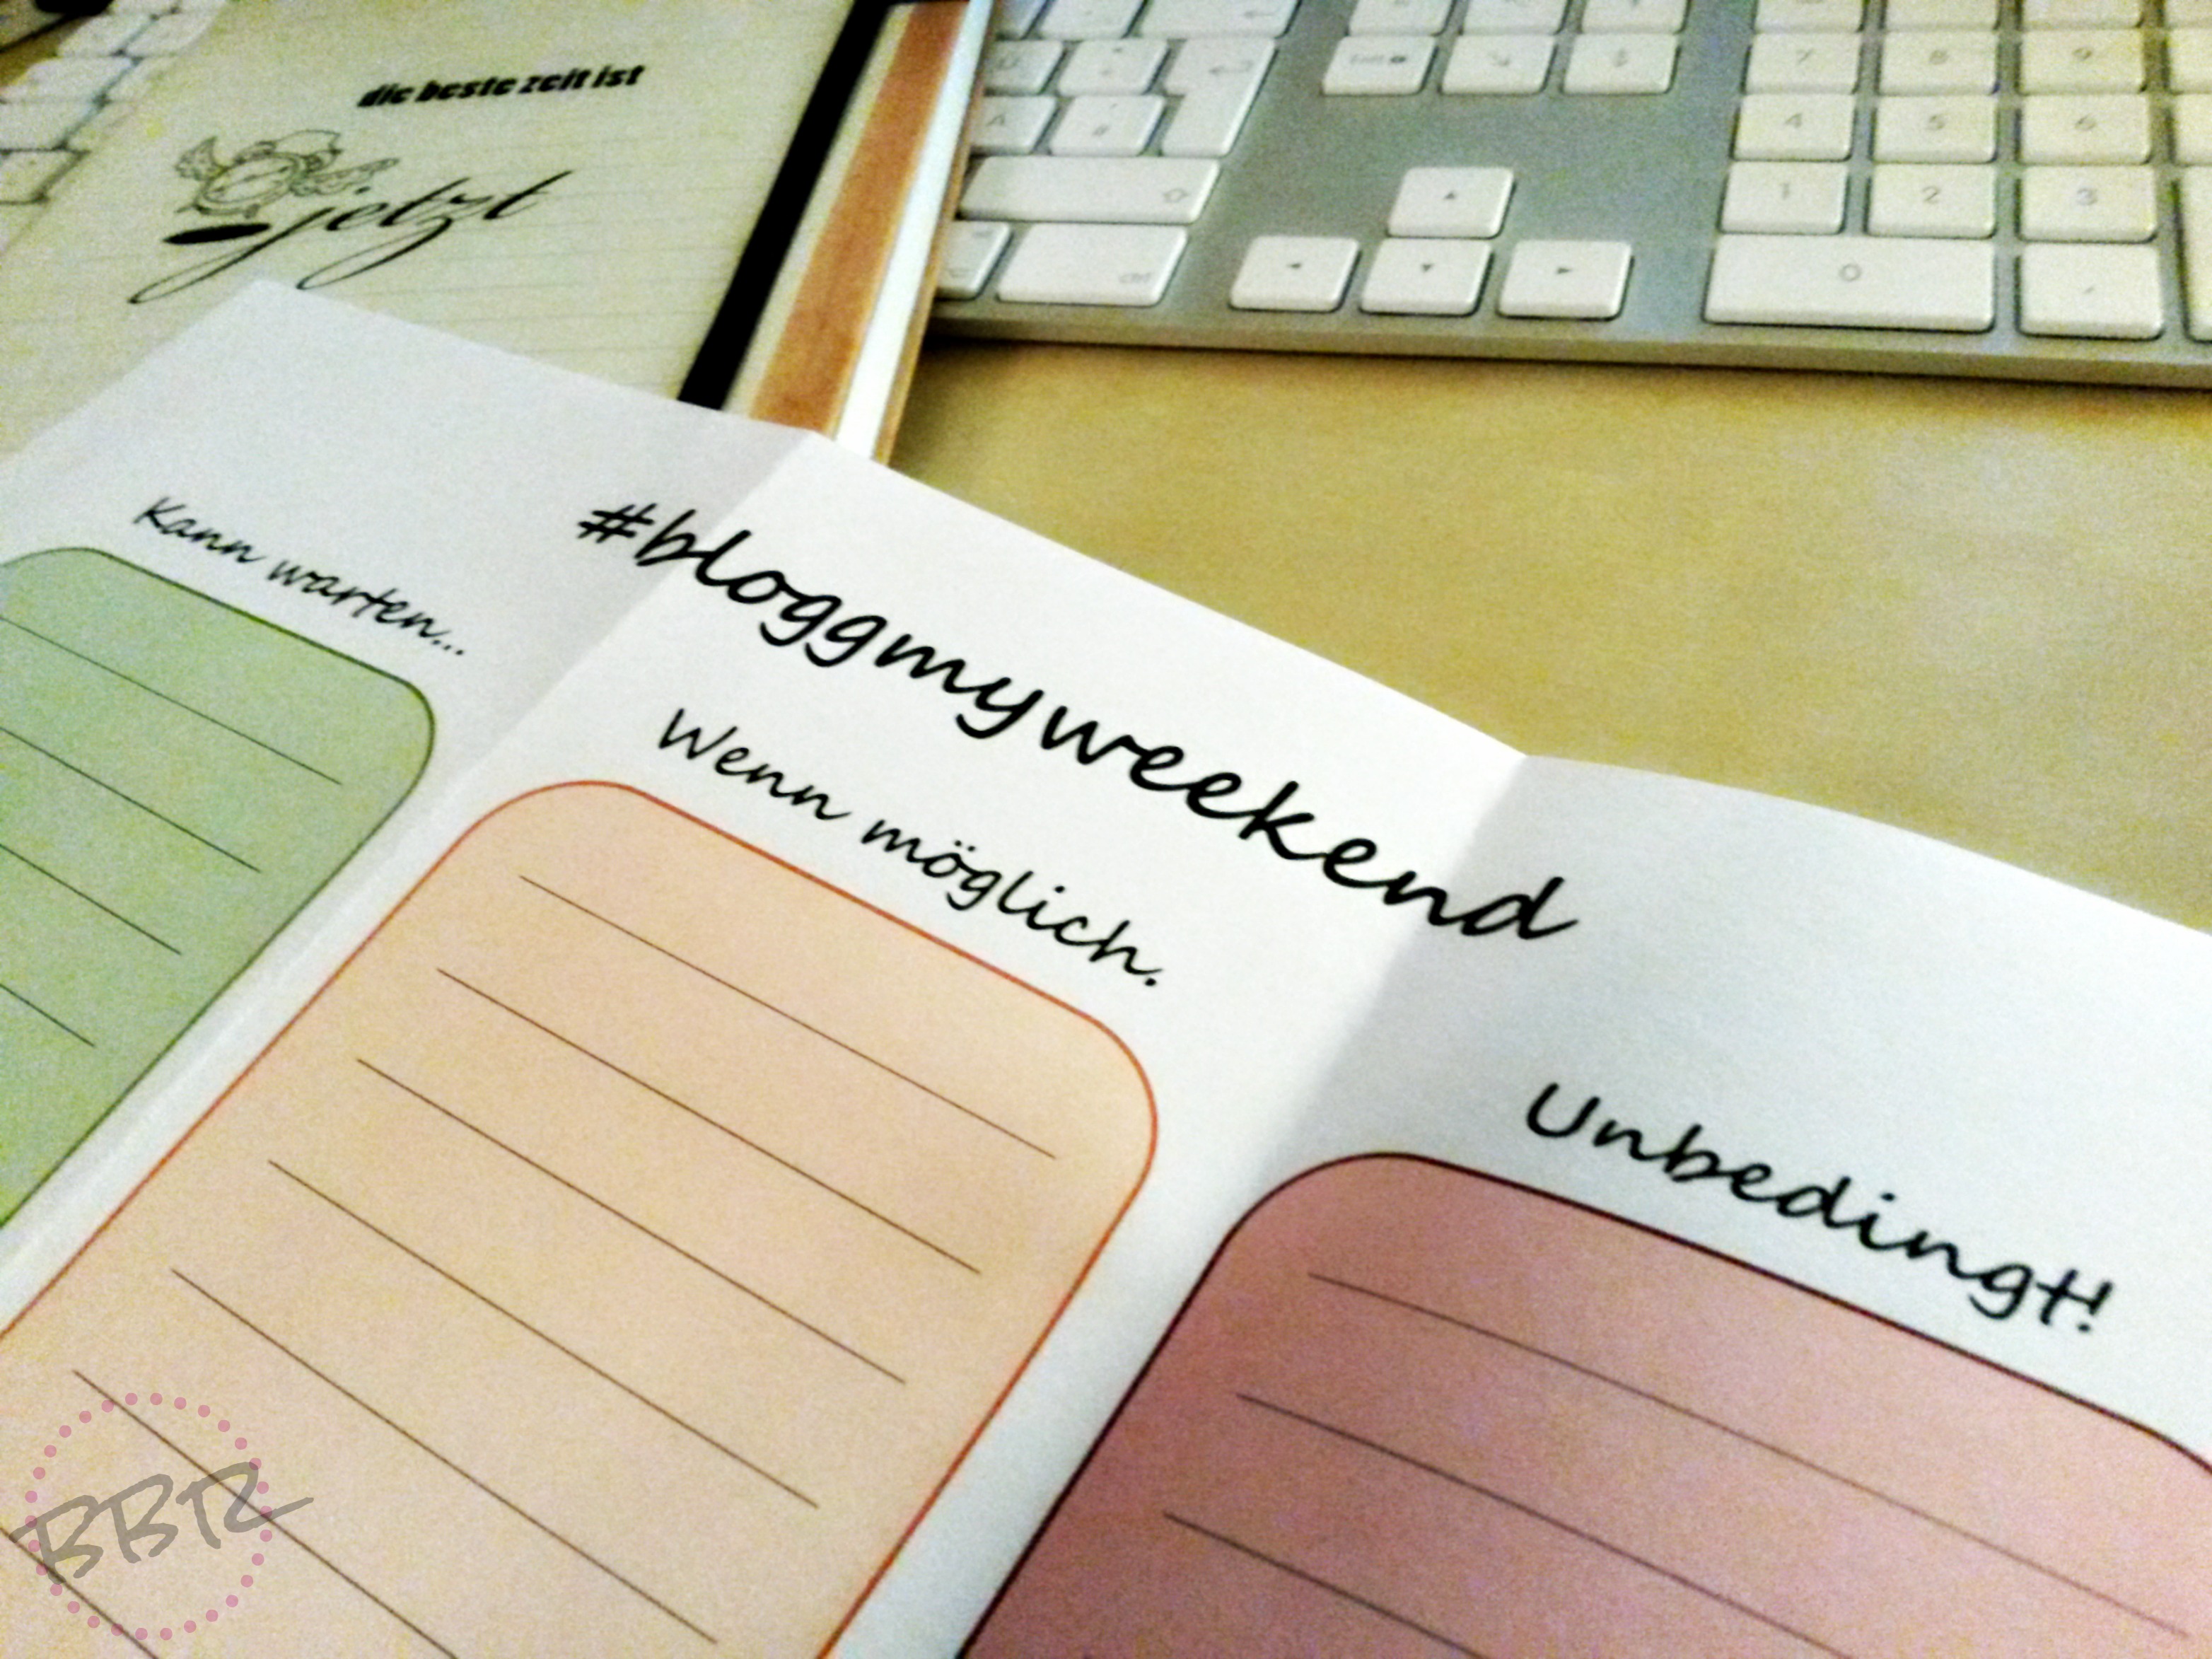 die beste zeit ist
jetzt
#bloggmyweekend
Kann warten...
Wenn möglich.
Unbedingt!
7 8 9
4 5 6
1 2 3
0 ,
A #
ctrl
BBR